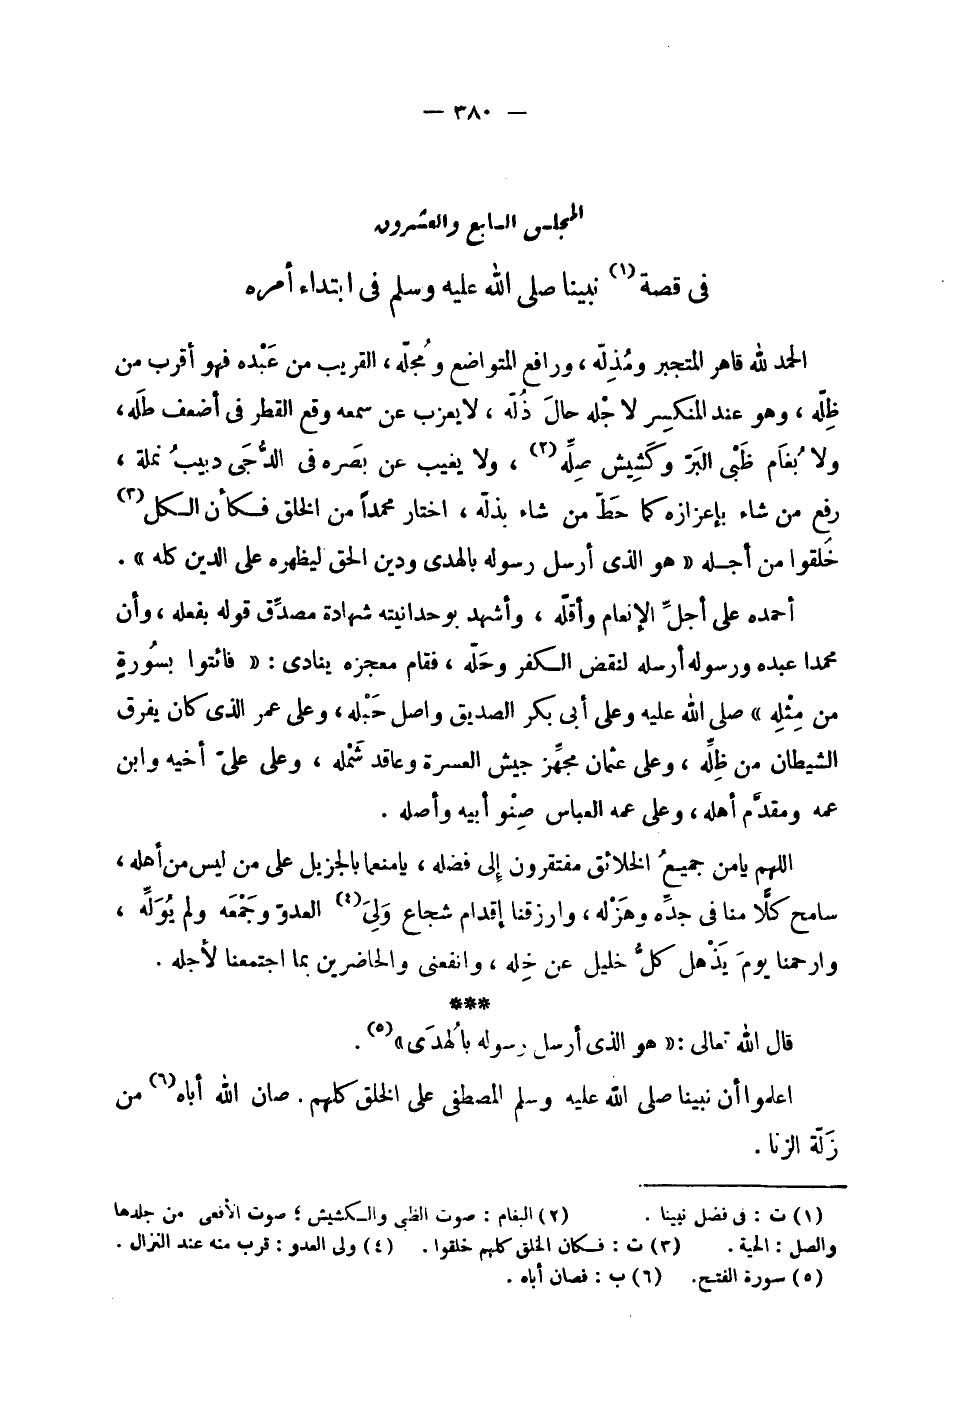 — ٣٨٠ —
المجلس السابع والعشرون
فى قصة (١) نبينا صلى الله عليه وسلم فى ابتداء أمره
الحمد لله قاهر المتجبر ومُذِلّه ، ورافع المتواضع ومُجلّه ، القريب من عَبْده فهو أقرب من
ظِلّه ، وهو عند المنكسِر لاجْله حالَ ذُلّه ، لا يعزب عن سمعه وقع القطر فى أضعف طَله ،
ولا بُغَام ظَبْى البَرّ وكَشِيش صِلِّه (٢) ، ولا يغيب عن بصَره فى الدُّجَى دبيبُ نملة ،
رفع من شاء بإعزازه كما حَطّ من شاء بذلّه ، اختار محمداً من الخلق فكأن الكل (٣)
خَلقوا من أجله « هو الذى أرسل رسوله بالهدى ودين الحق ليظهره على الدين كله » .
أحمده على أجلِّ الإنعام وأقلّه ، وأشهد بوحدانيته شهادة مصدِّق قوله بفعله ، وأن
محمدا عبده ورسوله أرسله لنقض الكفر وحَلّه ، فقام معجزه ينادى : « فائتوا بسُورةٍ
من مِثْلِه » صلى الله عليه وعلى أبى بكر الصديق واصل حَبْله ، وعلى عمر الذى كان يفرق
الشيطان من ظِلِّه ، وعلى عثمان مجهِّز جيش العسرة وعاقد شَمْله ، وعلى علىّ أخيه وابن
عمه ومقدَّم أهله ، وعلى عمه العباس صِنْو أبيه وأصله .
اللهم يامن جميعُ الخلائق مفتقرون إلى فضله ، يامنعما بالجزيل على من ليس من أهله ،
سامح كلًّا منا فى جدِّه وهَزْله ، وارزقنا إقدام شجاع وَلِىَ (٤) العدوّ وجَمْعَه ولم يُوَلِّه ،
وارحمنا يومَ يَذْهل كلُّ خليل عن خِله ، وانفعنى والحاضرين بما اجتمعنا لأجله .
***
قال الله تعالى : « هو الذى أرسل رسوله بالهُدَى » (٥) .
اعلموا أن نبينا صلى الله عليه وسلم المصطفى على الخلق كلهم . صان الله أباه (٦) من
زَلّة الزنا .
(١) ت : فى فضل نبينا . (٢) البغام : صوت الظبى والكشيش ؛ صوت الأفعى من جلدها
والصل : الحية . (٣) ت : فكان الخلق كلهم خلقوا . (٤) ولى العدو : قرب منه عند النزال .
(٥) سورة الفتح . (٦) ب : فصان أباه .